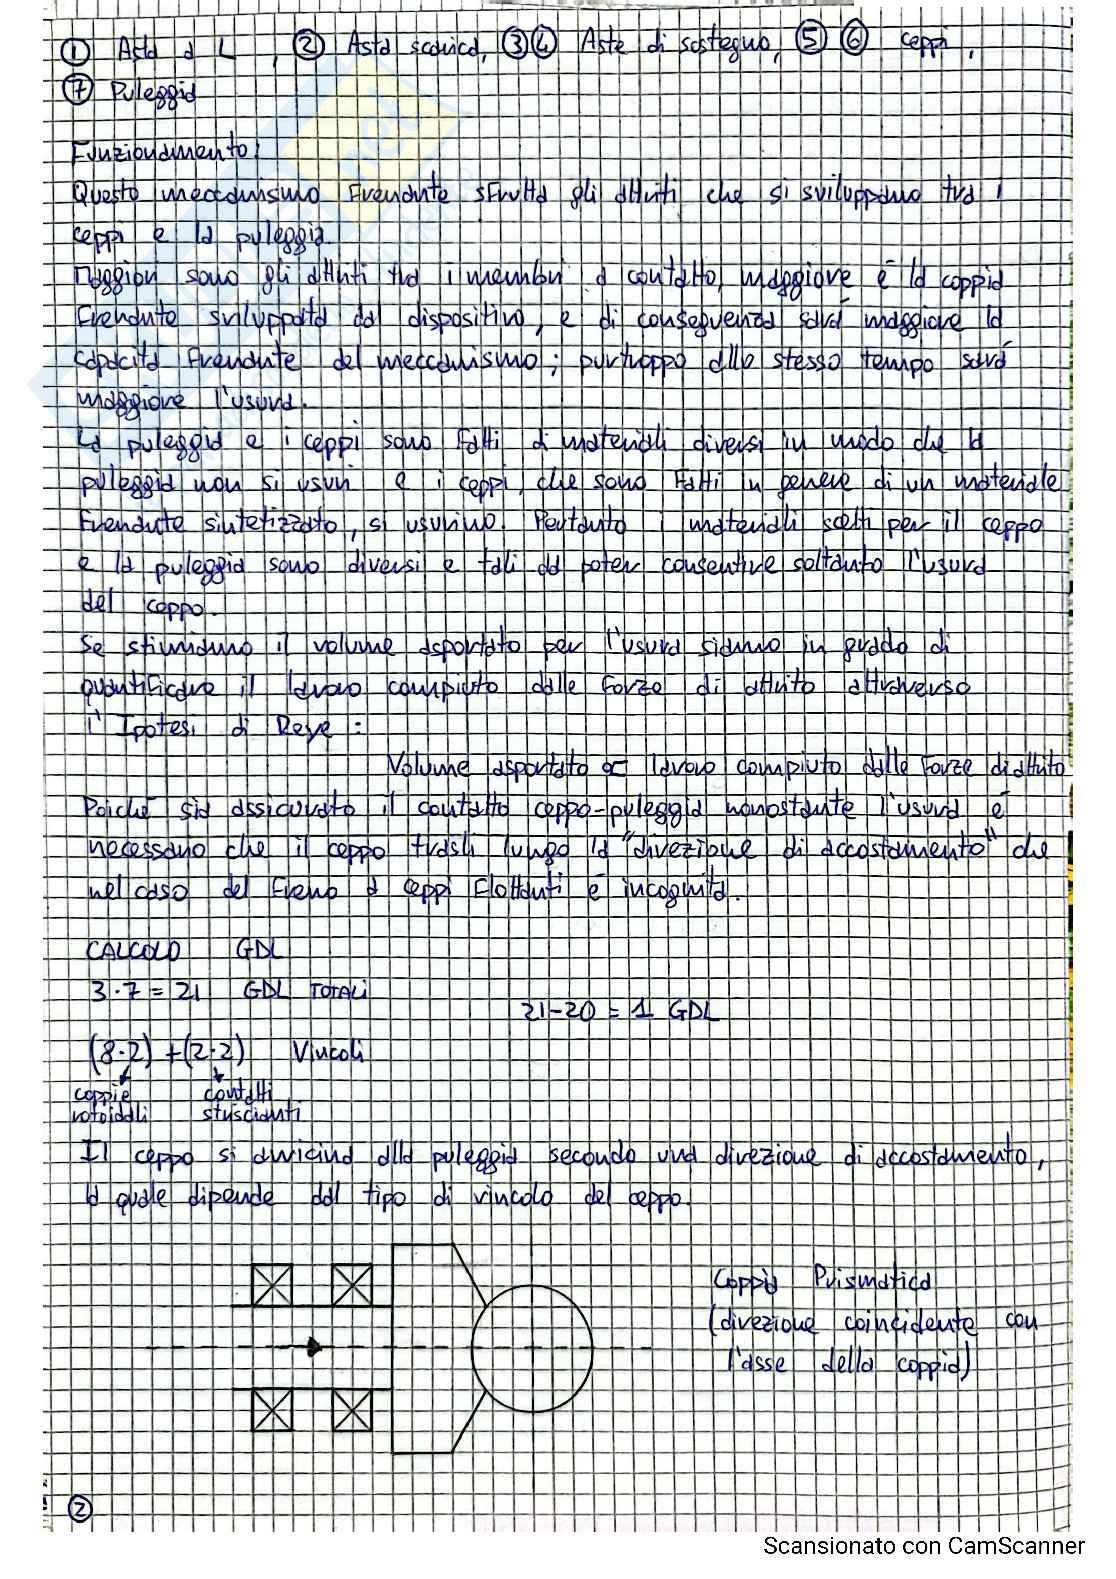 ① Asta a L , ② Asta scarica, ③④ Aste di sostegno, ⑤⑥ ceppi,
⑦ Puleggia
Funzionamento:
Questo meccanismo frenante sfrutta gli attriti che si sviluppano tra i
ceppi e la puleggia.
Maggiori sono gli attriti tra i membri a contatto, maggiore è la coppia
frenante sviluppata dal dispositivo, e di conseguenza sarà maggiore la
capacità frenante del meccanismo; purtroppo allo stesso tempo sarà
maggiore l'usura.
La puleggia e i ceppi sono fatti di materiali diversi in modo che la
puleggia non si usuri e i ceppi, che sono fatti in genere di un materiale
frenante sintetizzato, si usurino. Pertanto i materiali scelti per il ceppo
e la puleggia sono diversi e tali da poter consentire soltanto l'usura
del ceppo.
Se stimiamo il volume asportato per l'usura siamo in grado di
quantificare il lavoro compiuto dalle forze di attrito attraverso
l'Ipotesi di Reye :
Volume asportato ∝ lavoro compiuto dalle forze di attrito
Poichè sia assicurato il contatto ceppo-puleggia nonostante l'usura è
necessario che il ceppo trasli lungo la "direzione di accostamento" che
nel caso del freno a ceppi flottanti è incognita.
CALCOLO GDL
3·7=21 GDL TOTALI
21-20 = 1 GDL
(8·2) +(2·2) Vincoli
coppie contatti
rotoidali striscianti
Il ceppo si avvicina alla puleggia secondo una direzione di accostamento,
la quale dipende dal tipo di vincolo del ceppo.
Coppia Prismatica
(direzione coincidente con
l'asse della coppia)
②
Scansionato con CamScanner